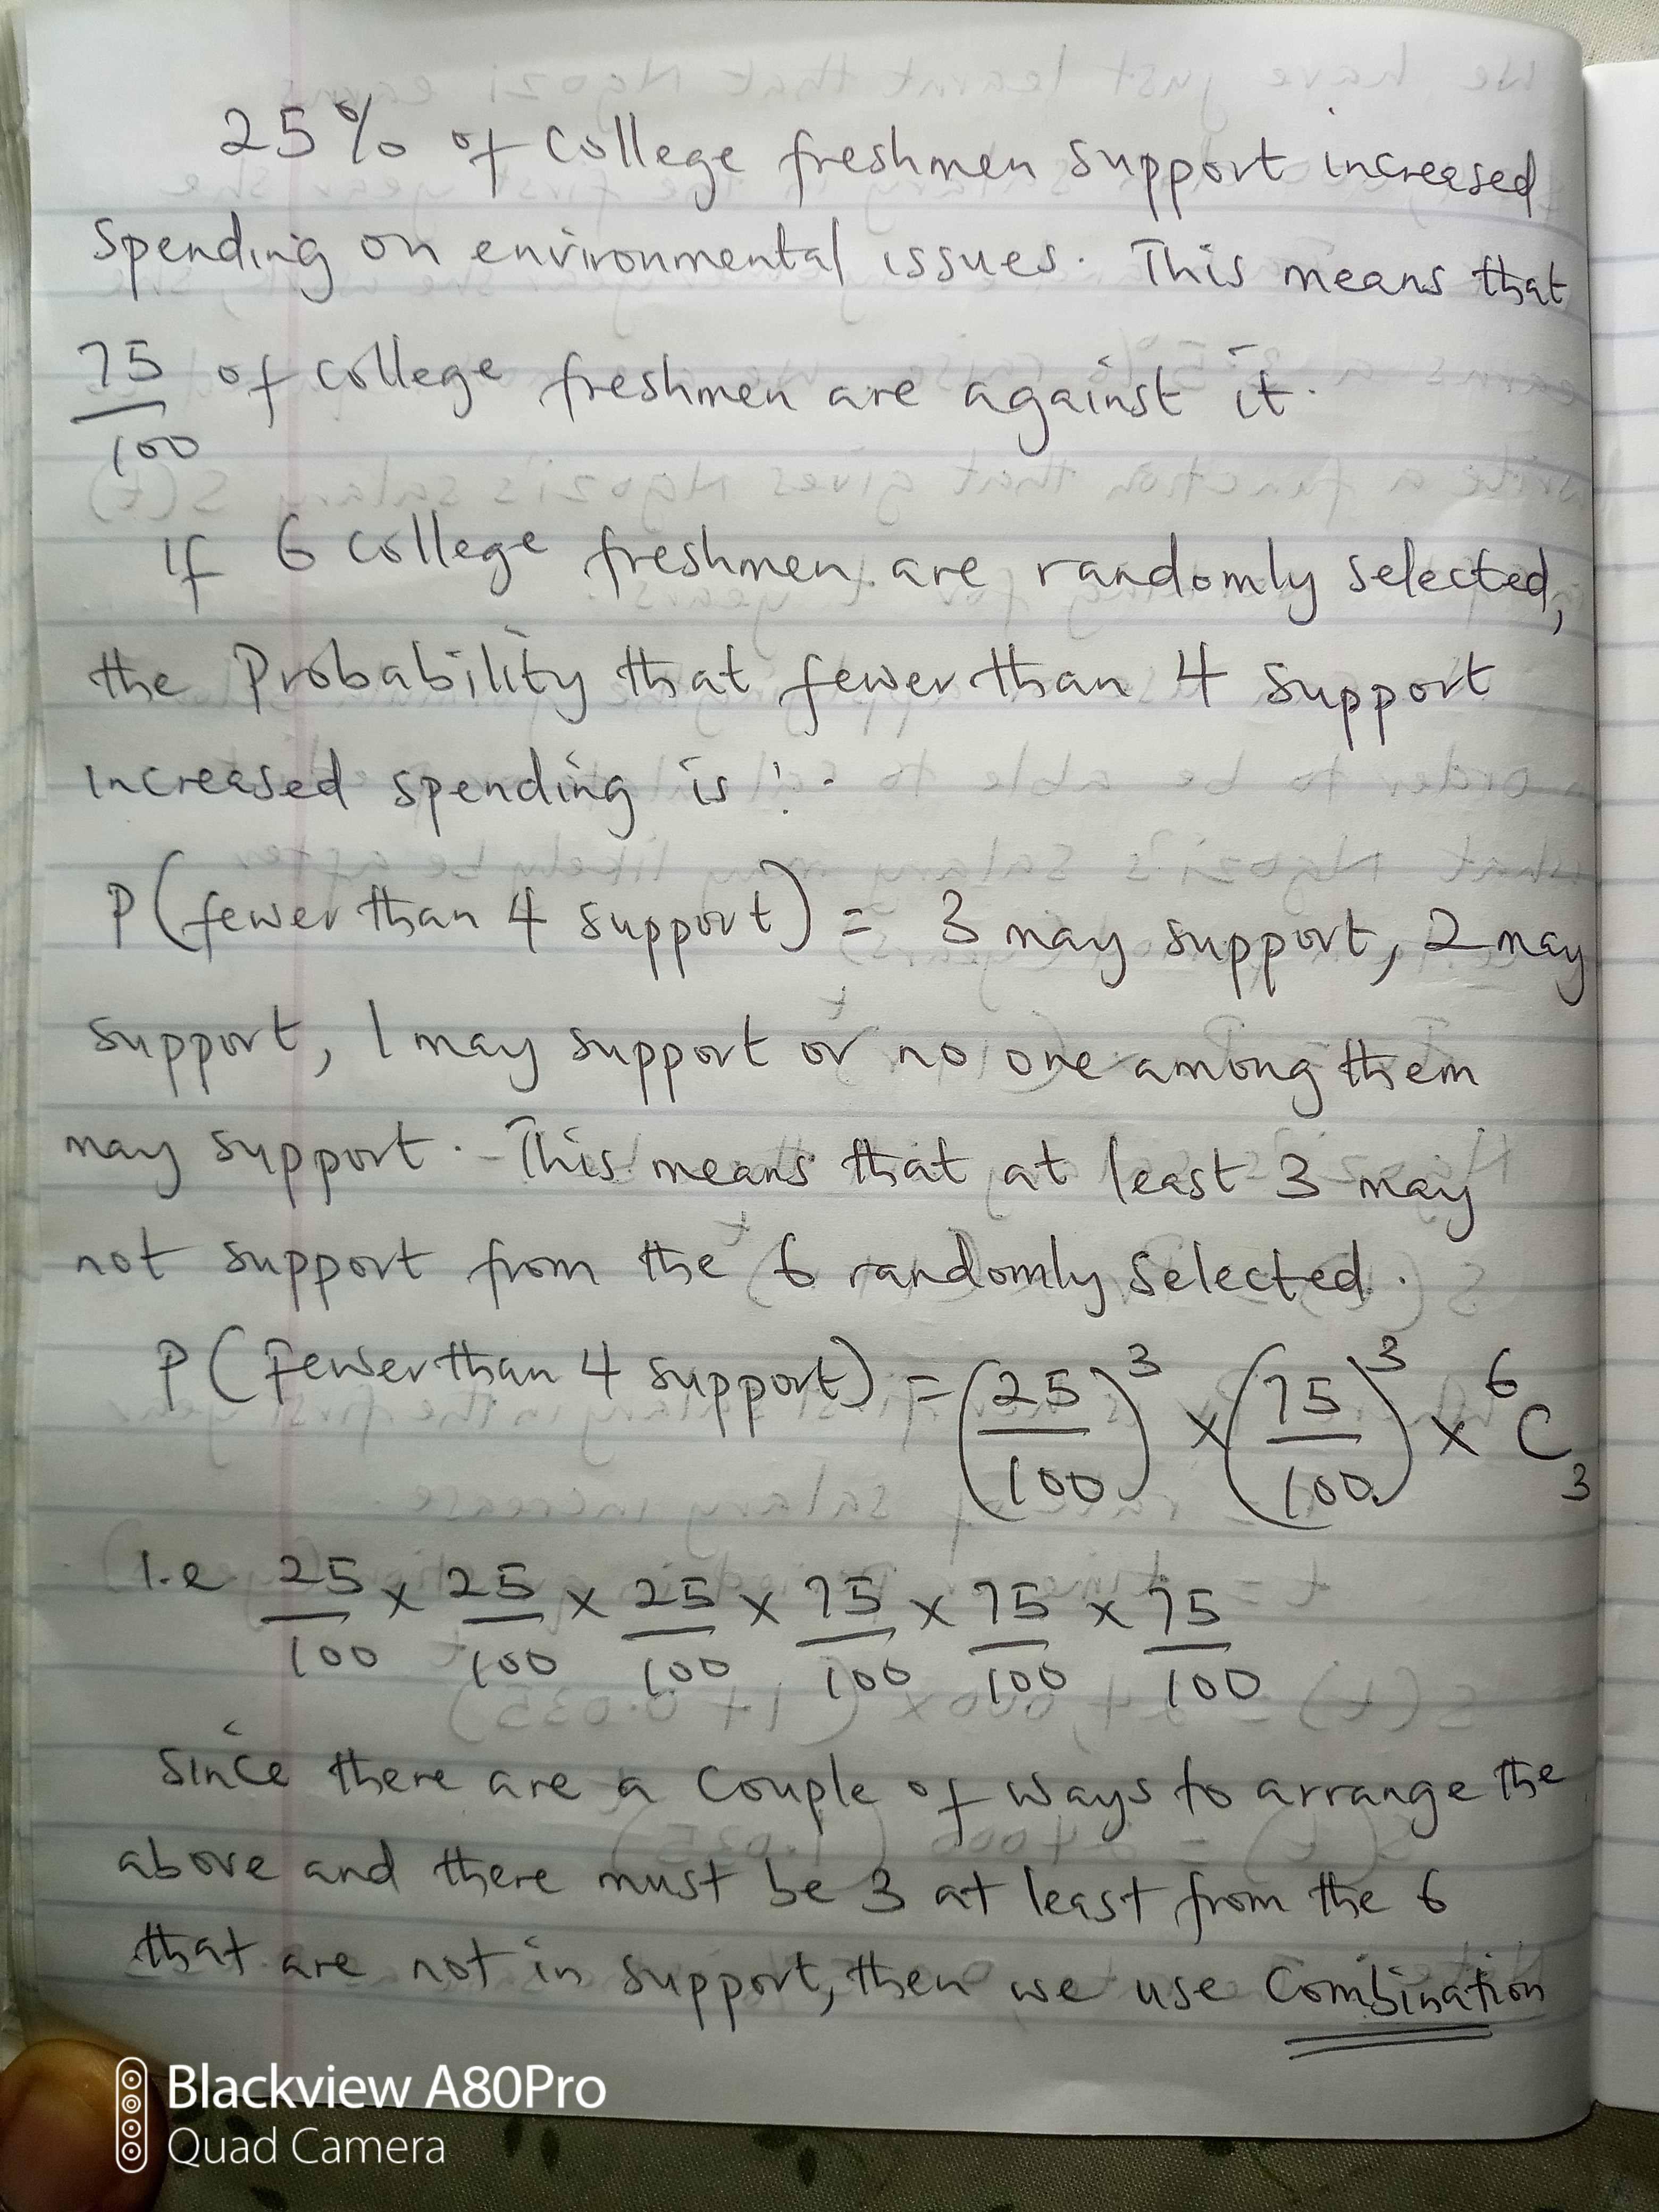 25% of college freshmen support increased
spending on environmental issues. This means that
75/100 of college freshmen are against it.
If 6 college freshmen are randomly selected,
the Probability that fewer than 4 support
increased spending is:
P(fewer than 4 support) = 3 may support, 2 may
support, 1 may support or no one among them
may support. This means that at least 3 may
not support from the 6 randomly selected.
P(fewer than 4 support) = (25/100)³ × (75/100)³ × ⁶C₃
i.e 25/100 × 25/100 × 25/100 × 75/100 × 75/100 × 75/100
Since there are a couple of ways to arrange the
above and there must be 3 at least from the 6
that are not in support, then we use Combination
Blackview A80Pro
Quad Camera